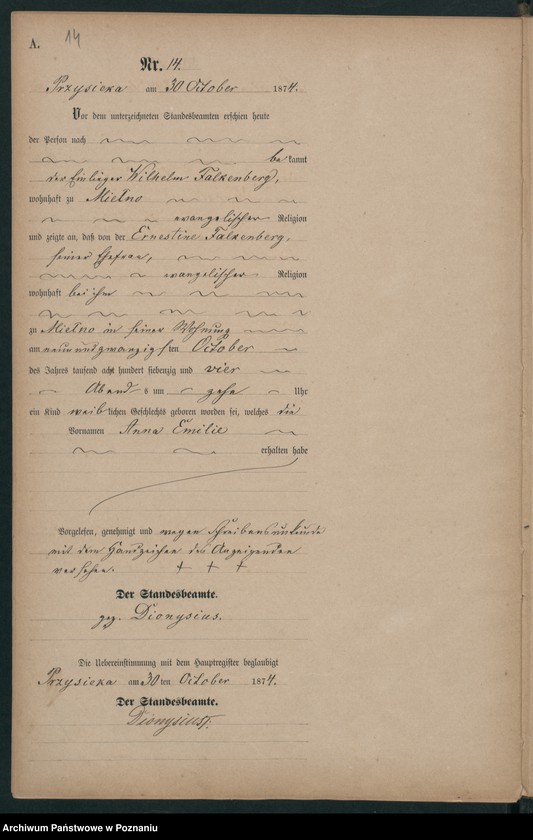 A. 14
Nr. 14.
Przysieka am 30 October 1874.
Vor dem unterzeichneten Standesbeamten erschien heute
der Person nach
bekannt
der Einlieger Wilhelm Falkenberg,
wohnhaft zu Mietno
evangelischer Religion
und zeigte an, daß von der Ernestine Falkenberg,
seiner Ehefrau,
evangelischer Religion
wohnhaft bei ihm
zu Mietno in seiner Wohnung
am neun und zwanzigsten October
des Jahres tausend acht hundert siebenzig und vier
Abends um zehn Uhr
ein Kind weiblichen Geschlechts geboren worden sei, welches die
Vornamen Anna Emilie
erhalten habe
Vorgelesen, genehmigt und wegen Schreibensunkunde
mit dem Handzeichen des Anzeigenden
versehen. + + +
Der Standesbeamte.
gez. Dionysius.
Die Uebereinstimmung mit dem Hauptregister beglaubigt
Przysieka am 30ten October 1874.
Der Standesbeamte.
Dionysius
Archiwum Państwowe w Poznaniu